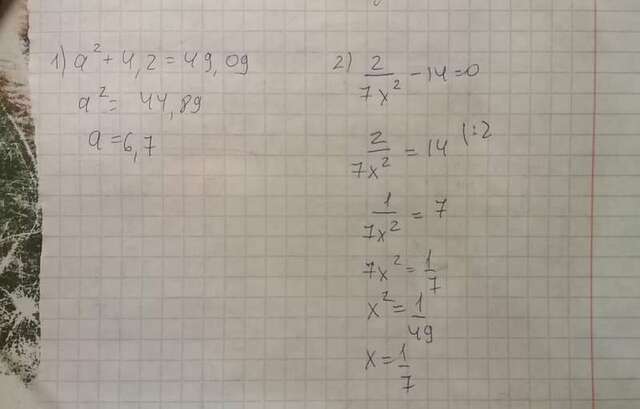 1) a² + 4,2 = 49,09
a² = 44,89
a = 6,7
2) 2/7x² - 14 = 0
2/7x² = 14 |:2
1/7x² = 7
7x² = 1/7
x² = 1/49
x = 1/7